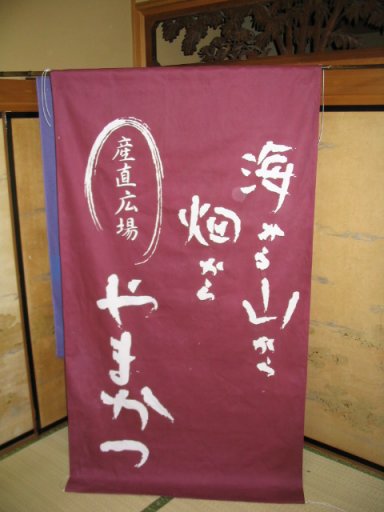 海から山から
畑から
産直広場
やまかつ